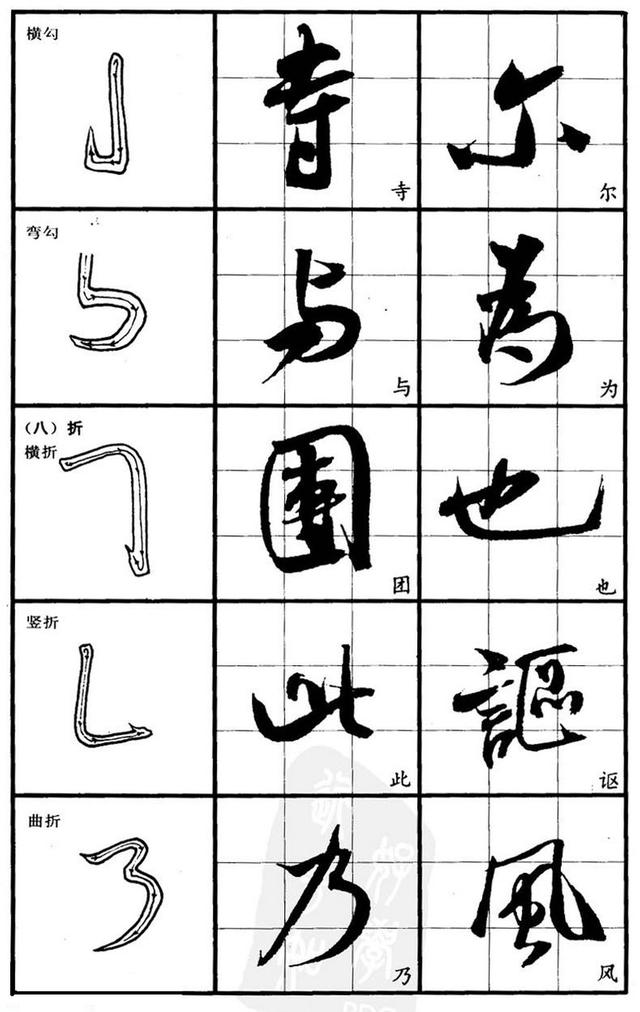 横勾
寺 寺
尔 尔
弯勾
与 与
為 为
（八）折
横折
團 团
也 也
竖折
此 此
謳 讴
曲折
乃 乃
風 风